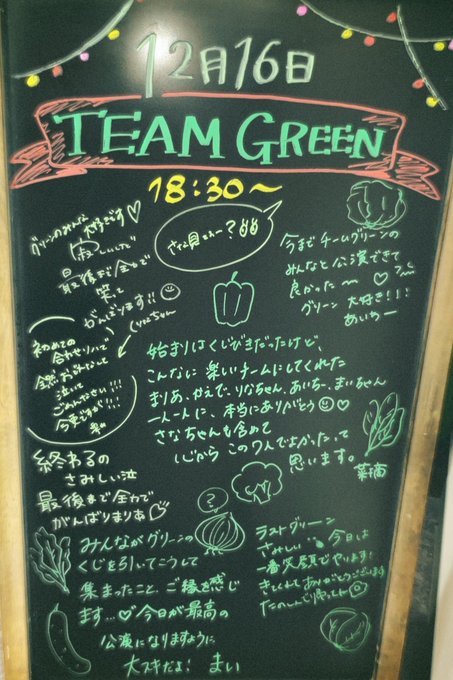 12月16日
TEAM GREEN
18:30〜
グリーンのみんな
大好きです♡
寂しいけど
最後まで全力で
笑って
がんばります!!
りなちゃん
今までチームグリーンの
みんなと公演できて
良かった〜
グリーン 大好き!!!
あいちー
初めての
合わせリハで
泣いて
ごめんなさい!!!
今更ですが!!!
始まりはくじびきだったけど、
こんなに楽しいチームにしてくれた
まりあ、かえで、りなちゃん、あいちー、まいちゃん
一人一人に、本当にありがとう♡
さなちゃんも含めて
心から この7人でよかったって
思います。
菜南
終わるの
さみしい泣
最後まで全力で
がんばりまりあ
?
みんながグリーンの
くじを引いてこうして
集まったこと、ご縁を感じ
ます…♡今日が最高の
公演になりますように
大スキだよ! まい
ラストグリーン
さみしい 今日は
一番笑顔でやります!
ありがとうございます